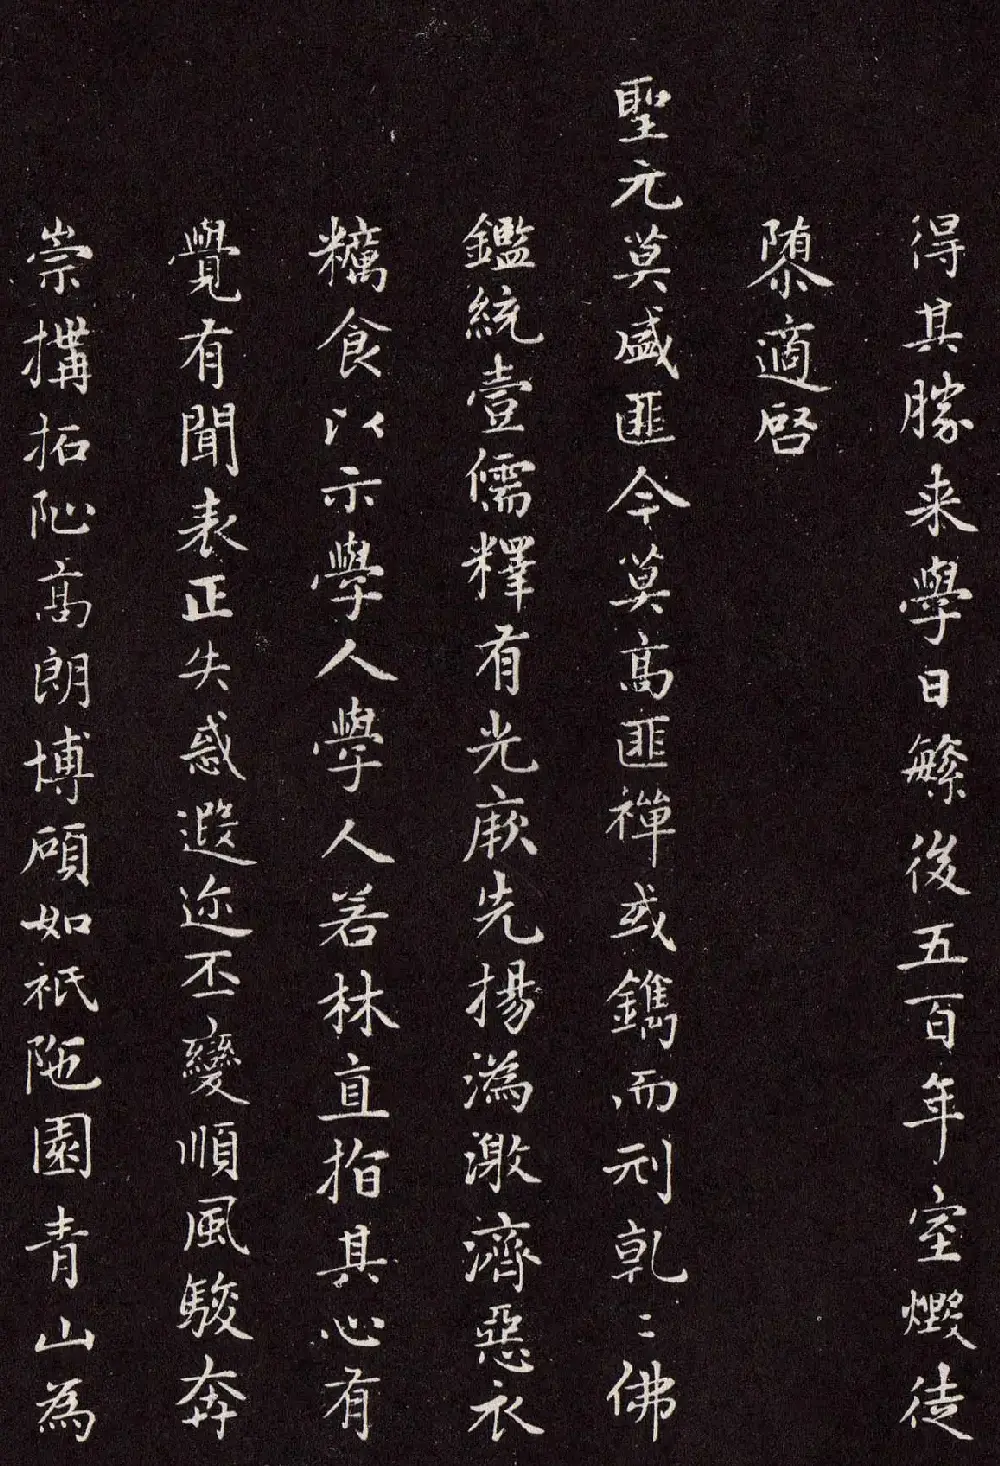 得其勝来學日繁後五百年室燬徒
隊適啓
聖元莫盛匪今莫高匪禪或鐫而刓乹〻佛
鑑統壹儒釋有光厥先揚溈激濟惡衣
糲食以示學人學人若林直指其心有
覺有聞表正失惑遐迩丕變順風駿奔
崇搆拓阯高朗博碩如祇陁園青山為